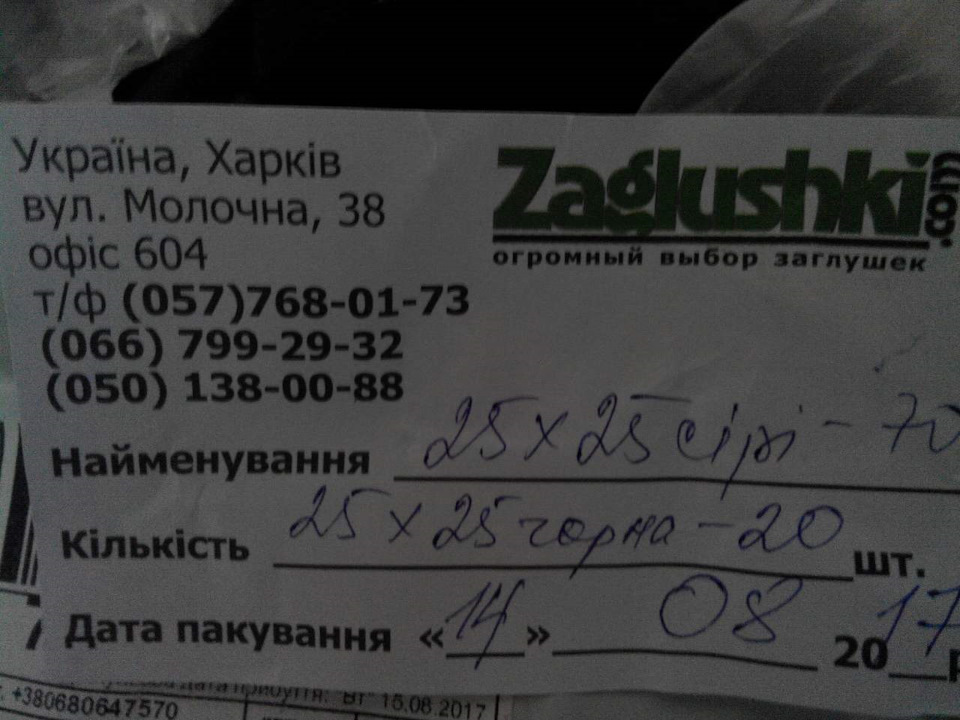 Україна, Харків
вул. Молочна, 38
офіс 604
т/ф (057)768-01-73
(066) 799-29-32
(050) 138-00-88
Zaglushki.com
огромный выбор заглушек
Найменування 25 x 25 сірі - 70
Кількість 25 x 25 чорна - 20 шт.
Дата пакування «14» 08 2017р
дата прибуття: Вт 15.08.2017
+380680647570